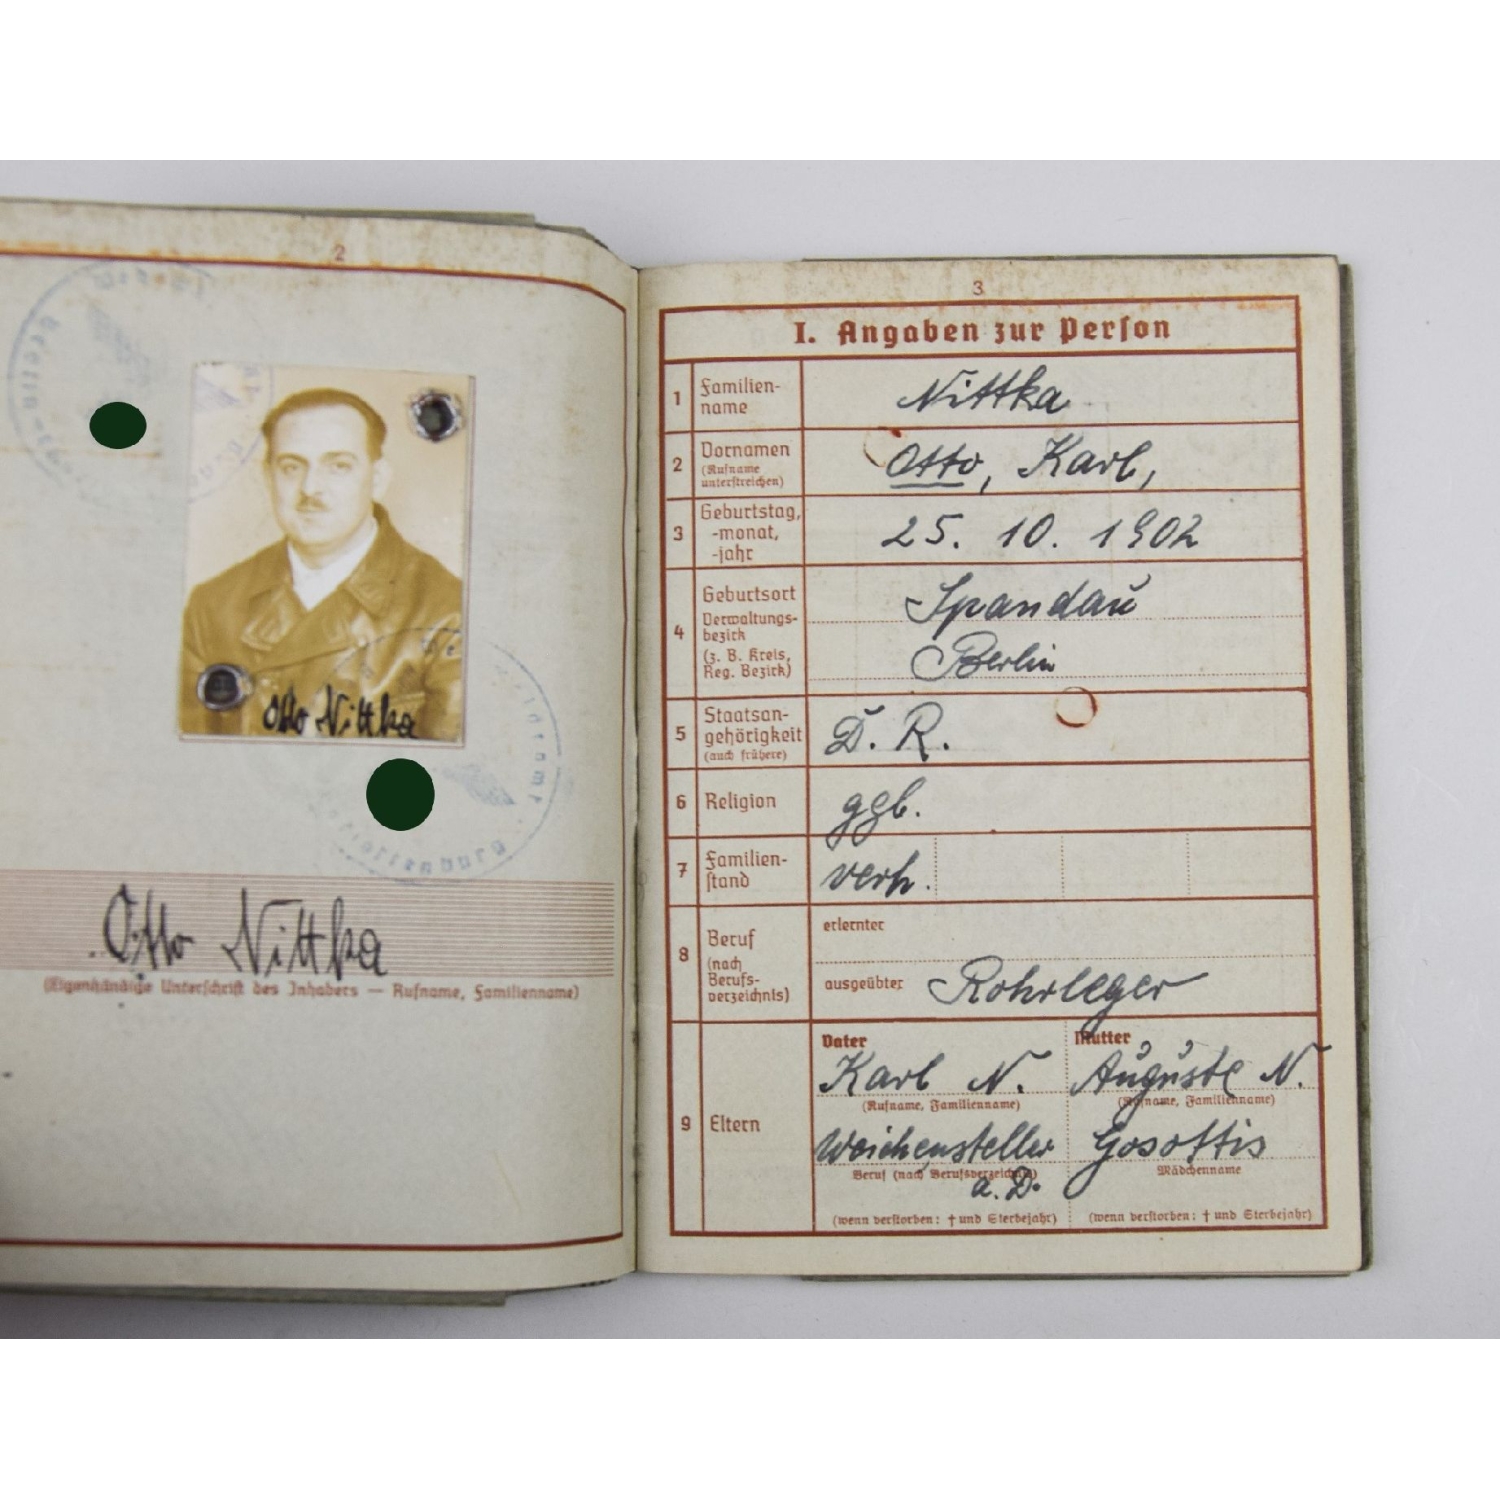 2
Otto Nittka
Otto Nittka
(Eigenhändige Unterschrift des Inhabers — Rufname, Familienname)
3
I. Angaben zur Person
1 Familien-
name
Nittka
2 Vornamen
(Rufname
unterstreichen)
Otto, Karl,
3 Geburtstag,
-monat,
-jahr
25. 10. 1902
4 Geburtsort
Verwaltungs-
bezirk
(z. B. Kreis,
Reg. Bezirk)
Spandau
Berlin
5 Staatsan-
gehörigkeit
(auch frühere)
D. R.
6 Religion
ggl.
7 Familien-
stand
verh.
8 Beruf
(nach
Berufs-
verzeichnis)
erlernter
ausgeübter Rohrleger
9 Eltern
Vater Mutter
Karl N. Auguste N.
(Rufname, Familienname) (Rufname, Familienname)
Weichensteller Gosottis
Beruf (nach Berufsverzeichnis) Mädchenname
a. D.
(wenn verstorben: † und Sterbejahr) (wenn verstorben: † und Sterbejahr)